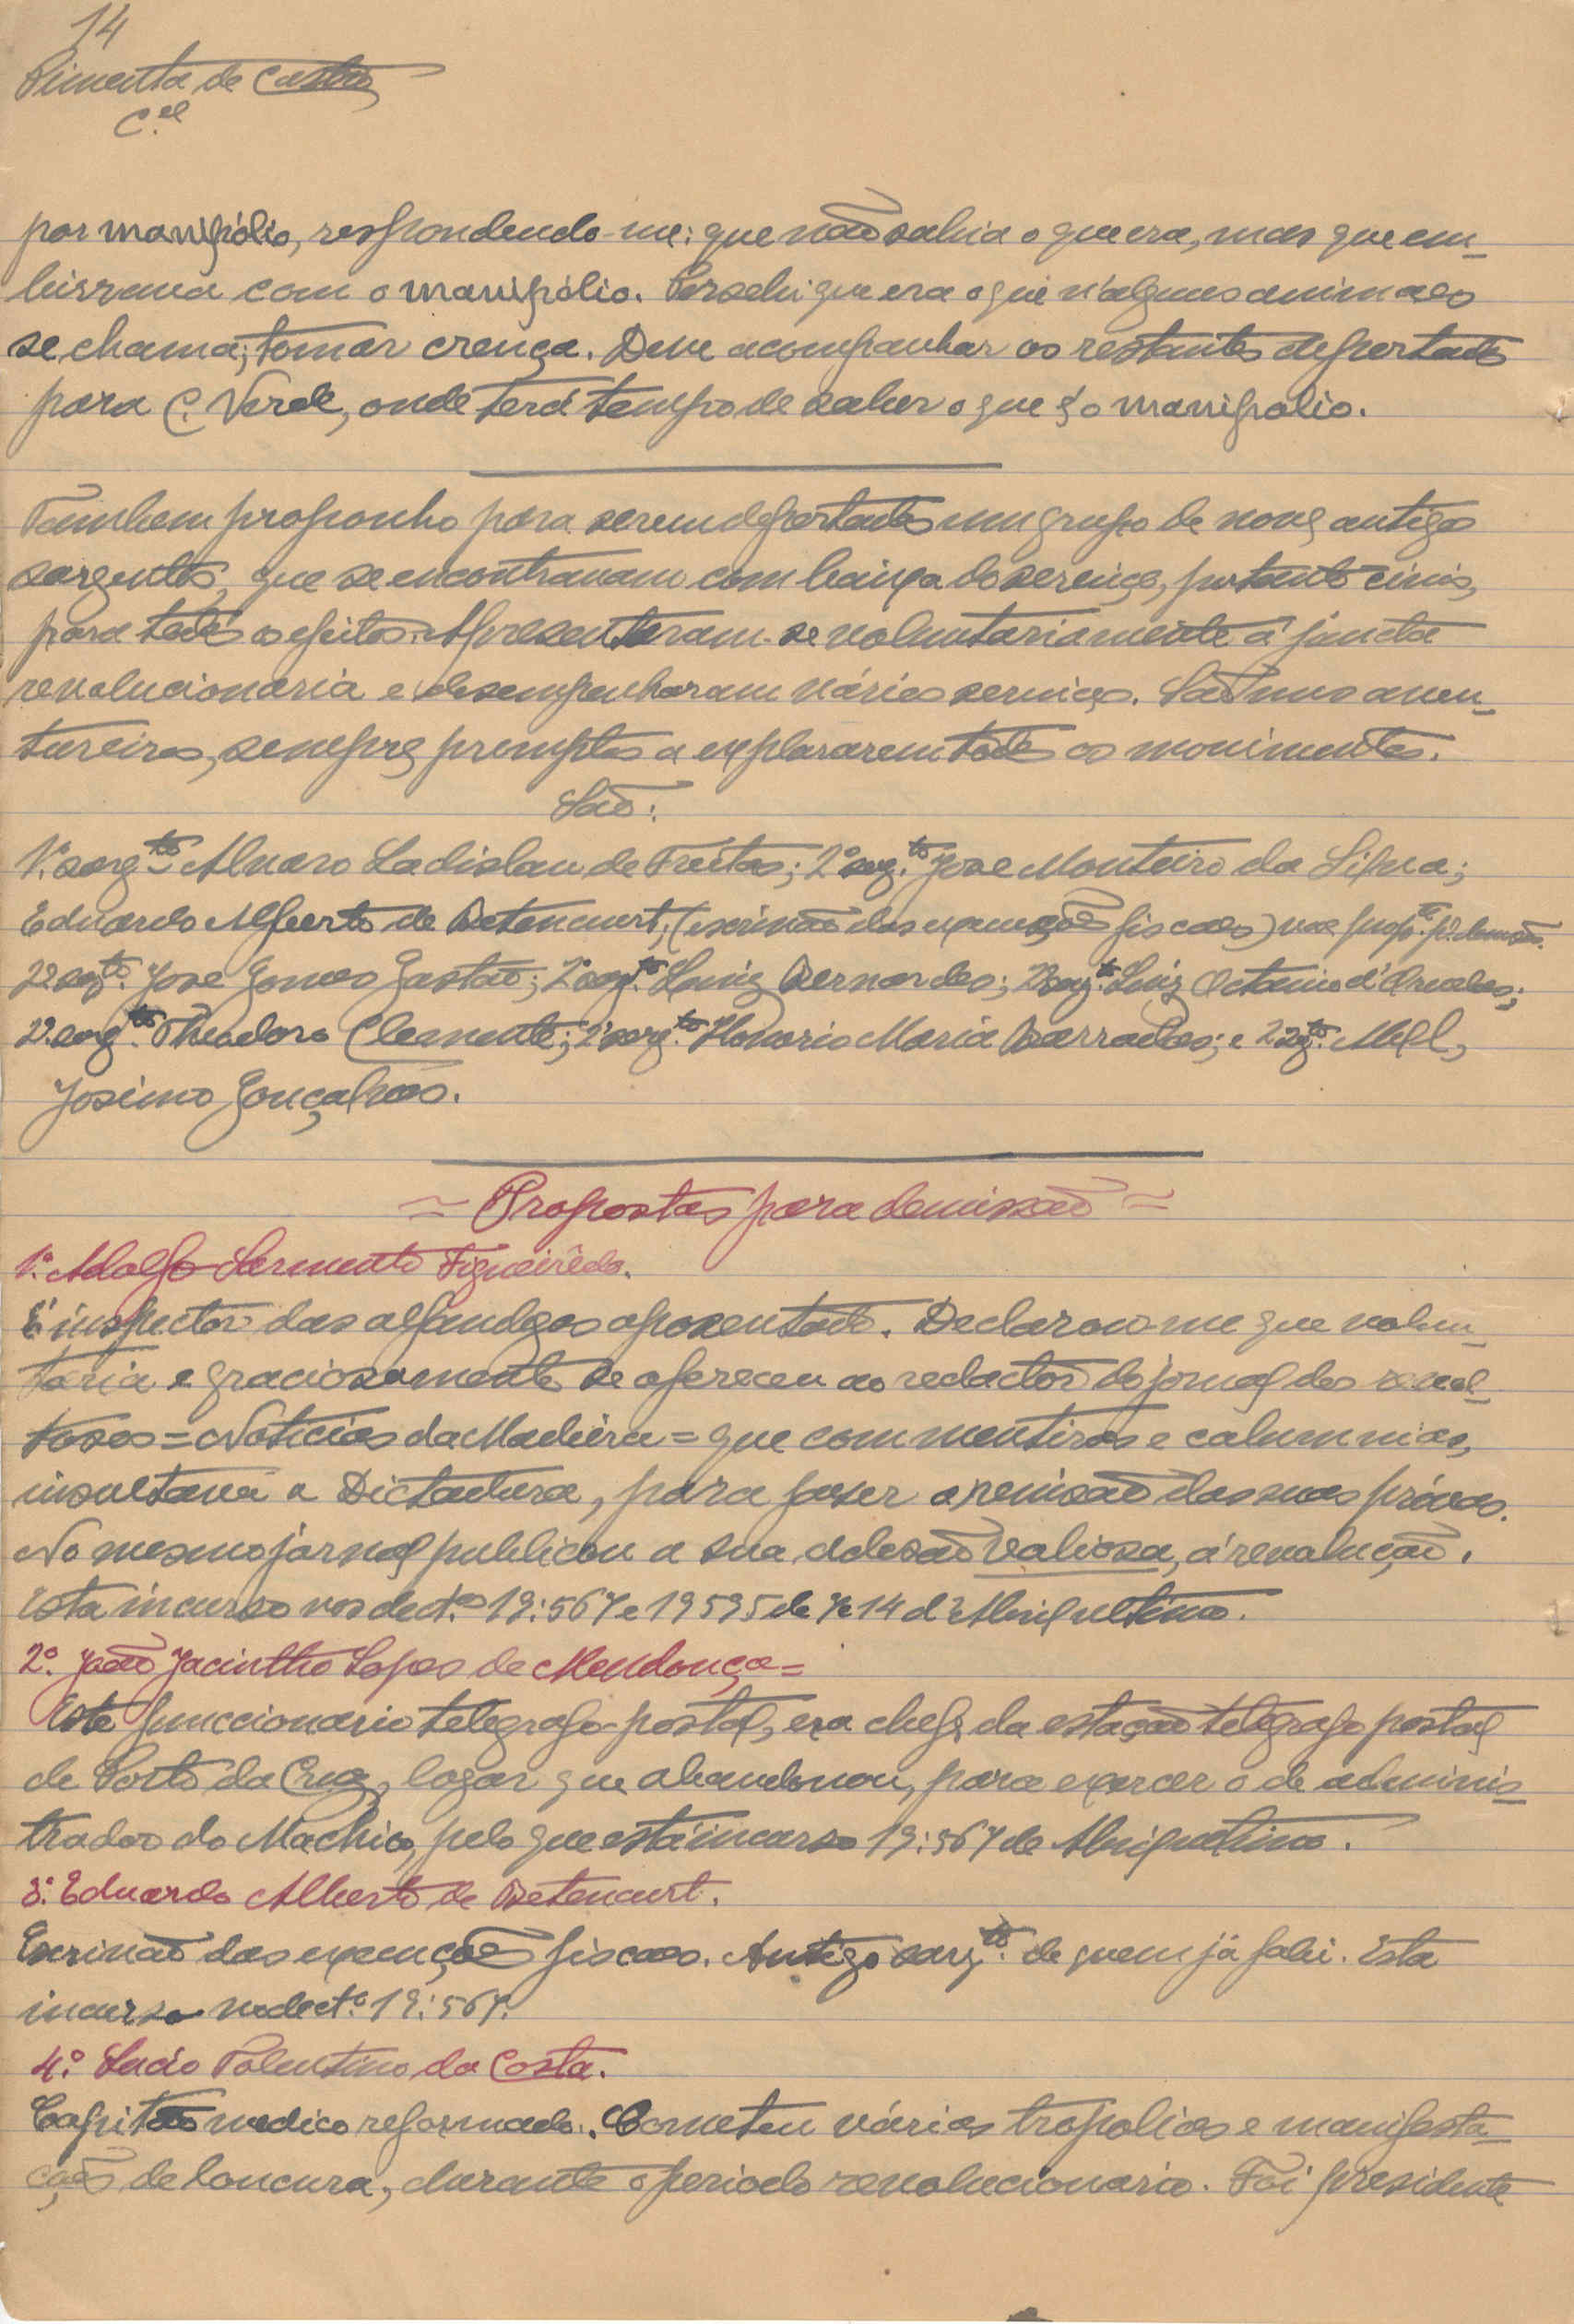 14
Pimenta de Castro
C.el
por manipólio, respondendo-me: que não sabia o que era, mas que em-
birrava com o manipólio. Persebi que era o que n'algumas animaes
se chama; tomar crença. Deve acompanhar os restantes deportados
para C. Verde, onde terá tempo de saber o que é o manipolio.
Tambem proponho para serem deportados um grupo de nove antigos
sargentos, que se encontravam com baixa do serviço, portanto civis,
para todos os efeitos. Apresentaram-se voluntariamente á juncta
revolucionaria e desempenharam vários serviços. São uns aven-
tureiros, sempre promptos a explorarem todos os movimentos.
São:
1.º sarg.to Alvaro Ladislau de Freitas; 2.º sarg.to José Monteiro da Silva;
Eduardo Alberto de Betencourt, (escrivão das execuções fiscaes) vae prop.to p.ª demissão.
2.º sarg.to José Gomes Gastão; 2.º sarg.to Luiz Bernardes; 2.º sarg.to Luiz Octavio d'
2.º sarg.to Theodoro Clemente; 2.º sarg.to Honorio Maria Barradas; e 2.º sarg.to M.el,
Josimo Gonçalves.
= Propostas para demissão =
1.º Adolfo Sarmento Figueirêdo.
É inspector das alfandegas aposentado. Declarou-me que volun-
taria e graciosamente se ofereceu ao redactor do jornal dos revol-
tosos = Noticias da Madeira = que com mentiras e calumnias,
insultava a Dictadura, para fazer a revisão das suas próvas.
No mesmo jornal publicou a sua adesão valiosa, á revolução.
Esta incurso nos dect.os 19:567 e 19595 de 7 e 14 d'Abril ultimo.
2.º João Jacintho Lopes de Mendonça =
Este funccionario telegrafo-postal, era chefe da estação telegrafo postal
de Porto da Cruz, logar que abandonou, para exercer o de adminis-
trador do Machico, pelo que está incurso 19:567 de Abril ultimo.
3.º Eduardo Alberto de Betencurt.
Escrivão das execuções fiscaes. Antigo sarg.to de quem já falei. Esta
incurso no dect.º 19:567.
4.º Lucio Tolentino da Costa.
Capitão medico reformado. Cometeu várias tropolias e manifesta-
ções de loucura, durante o periodo revolucionario. Foi presidente